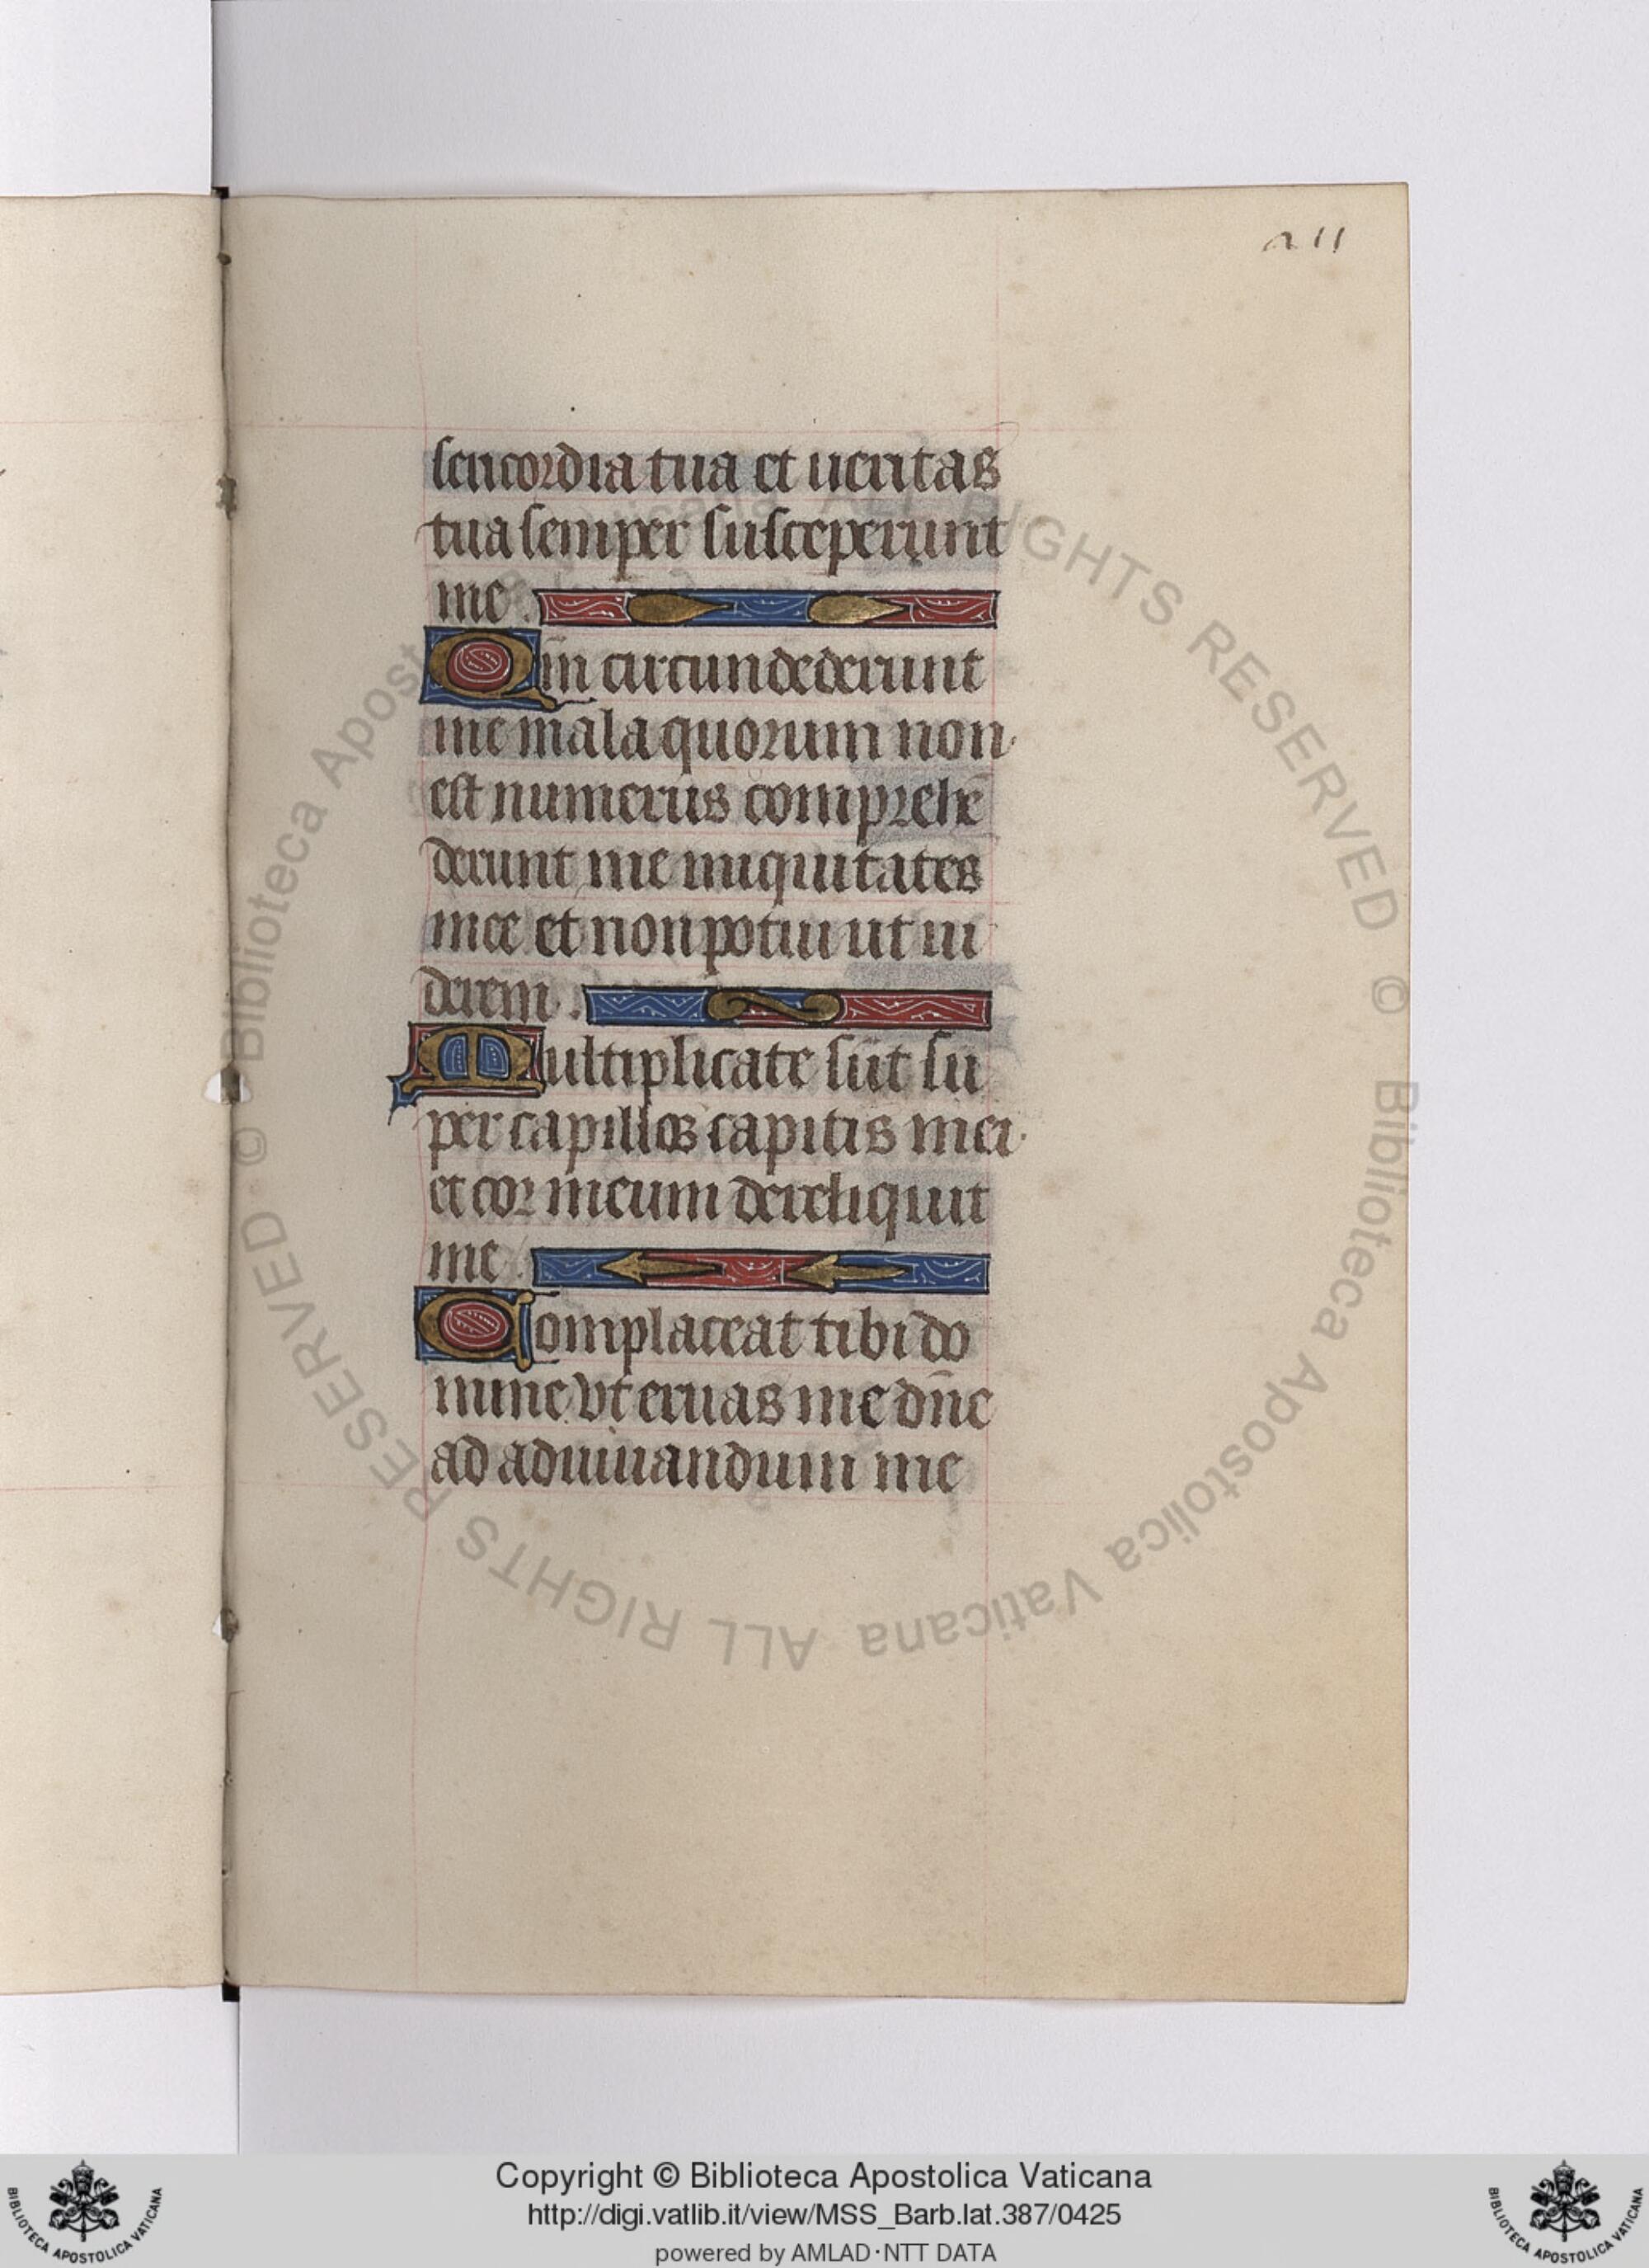 211
sericordia tua et ueritas
tua semper susceperunt
me.
Qm̄ circundederunt
me mala quorum non
est numerus comprehē
derunt me iniquitates
mee et non potui ut ui
derem.
Multiplicate sūt su
per capillos capitis mei
et cor meum dereliquit
me.
Complaceat tibi do
mine vt eruas me dn̄e
ad adiuuandum me
© Biblioteca Apostolica Vaticana ALL RIGHTS RESERVED
© Biblioteca Apostolica Vaticana ALL RIGHTS RESERVED
Copyright © Biblioteca Apostolica Vaticana
http://digi.vatlib.it/view/MSS_Barb.lat.387/0425
powered by AMLAD·NTT DATA
BIBLIOTECA APOSTOLICA VATICANA
BIBLIOTECA APOSTOLICA VATICANA